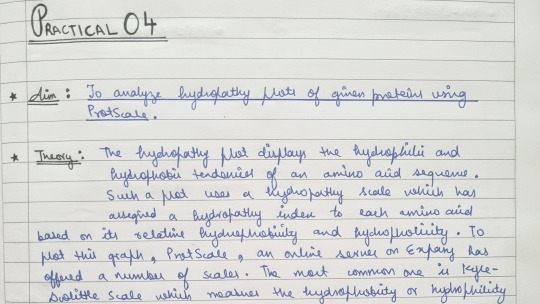 PRACTICAL 04
★ Aim : To analyze hydropathy plots of given proteins using
ProtScale.
★ Theory : The hydropathy plot displays the hydrophilic and
hydrophobic tendencies of an amino acid sequence.
Such a plot uses a hydropathy scale which has
assigned a hydropathy index to each amino acid
based on its relative hydrophobicity and hydrophilicity. To
plot this graph, ProtScale, an online server on Expasy has
offered a number of scales. The most common one is Kyte-
Doolittle scale which measures the hydrophobicity or hydrophilicity